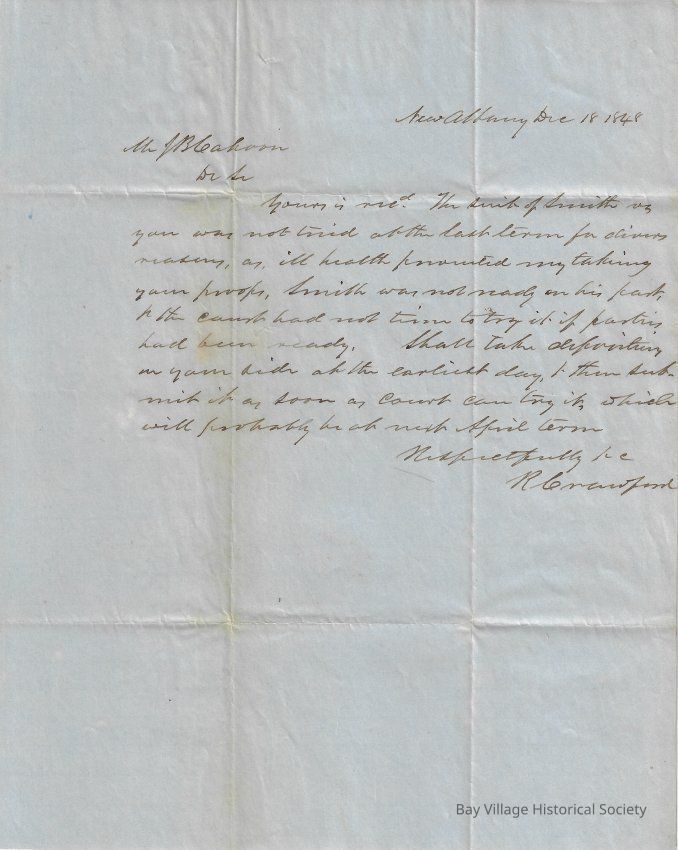 New Albany Dec 18 1848
Mr J B Cahoon
Dr Sr
Yours is recd. The suit of Smith vs
you was not tried at the last term for divers
reasons, as, ill health prevented my taking
your proofs, Smith was not ready on his part,
& the court had not time to try it if parties
had been ready. Shall take depositions
on your side at the earliest day, & then sub
mit it as soon as court can try it, which
will probably be at next April term
Respectfully &c
R Crawford
Bay Village Historical Society